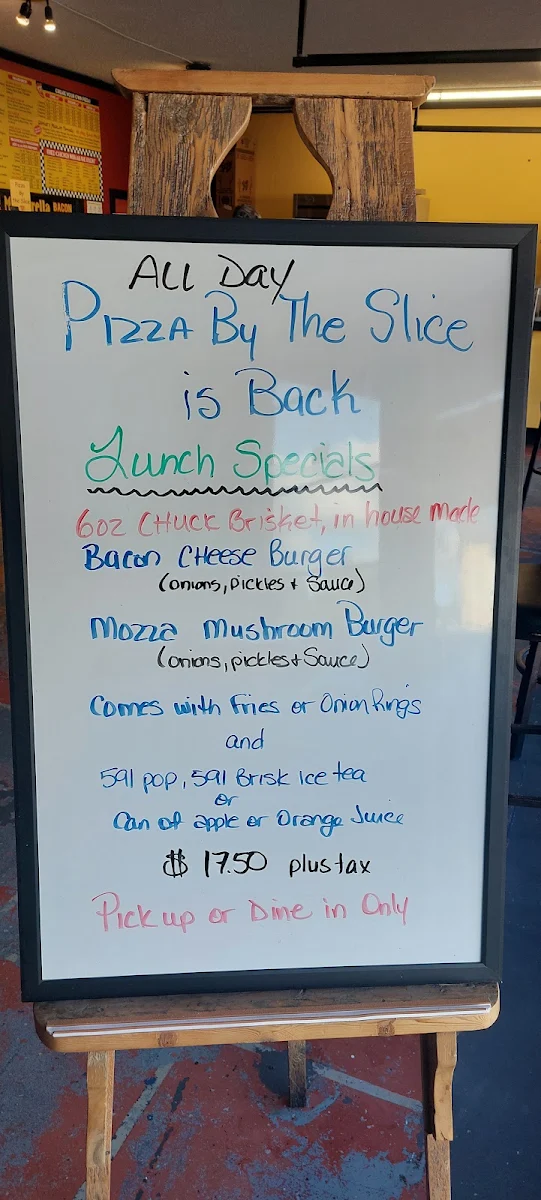 ALL Day
Pizza By The Slice
is Back
Lunch Specials
6oz Chuck Brisket, in house made
Bacon Cheese Burger
(onions, pickles + Sauce)
Mozza Mushroom Burger
(onions, pickles + Sauce)
Comes with Fries or Onion Rings
and
591 pop, 591 Brisk ice tea
or
Can of apple or Orange Juice
$ 17.50 plus tax
Pick up or Dine in Only
BACON